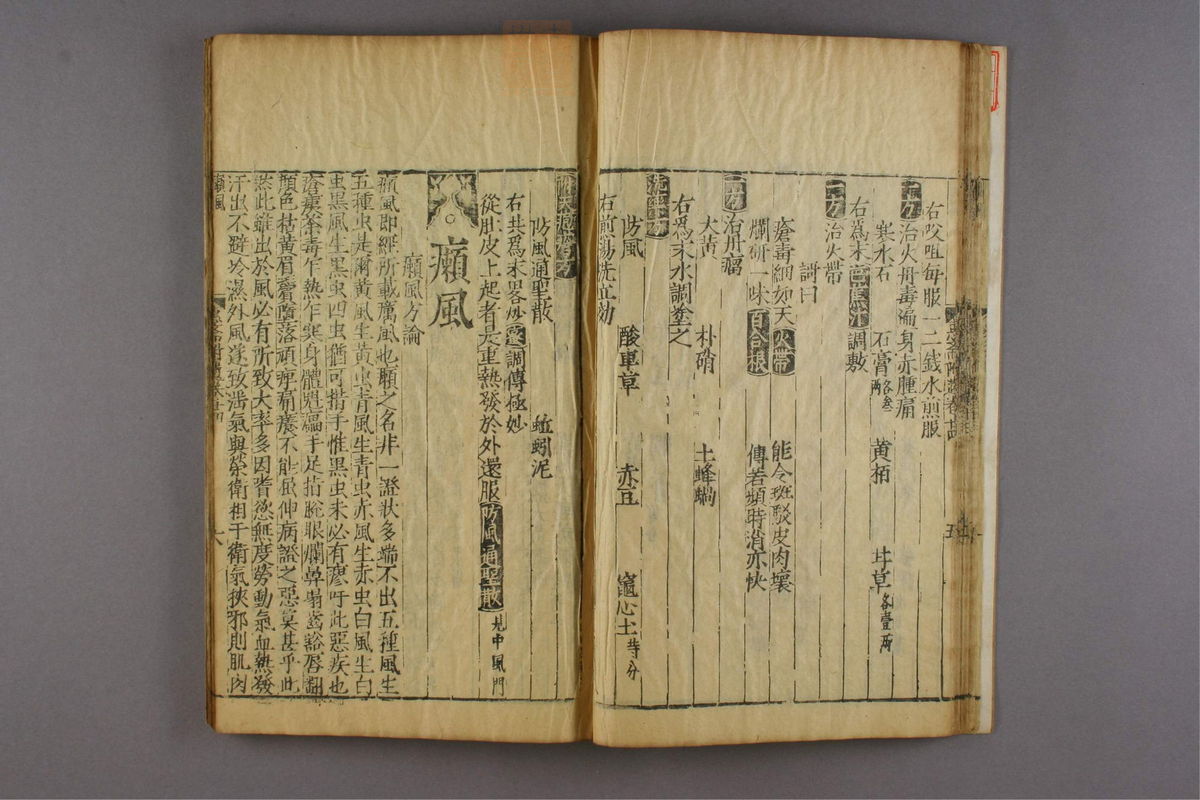 右㕮咀每服一二錢水煎服
一方治火丹毒遍身赤腫痛
寒水石 石膏各叁兩 黄栢 甘草各壹兩
右爲末芭蕉汁調敷
一方治火帶
詩曰
瘡毒網如天火帶 能令斑駁皮肉壞
爛研一味百合根 傅若須時消亦快
一方治丹瘤
大黄 朴硝 土蜂蝸
右爲末水調塗之
洗藥方
防風 酸車草 赤豆 竈心土等分
右煎湯洗立効
防風通聖散 蚯蚓泥
右共爲末畧炒蜜調傅極妙
從肚皮上起者是重熱發於外還服防風通聖散見中風門
癩風
癩風方論
癩風即經所載厲風也厲之名非一證狀多端不出五種風生
五種虫是爾黄風生黄虫青風生青虫赤風生赤虫白風生白
虫黑風生黑虫四虫猶可措手惟黑虫未必有瘳吁此惡疾也
瘡瘻荼毒乍熱乍寒身體魁瘟手足指脫眼爛鼻塌齒豁唇翻
顔色枯黄眉鬚墮落頑痹痛癢不能俶伸病證之惡莫甚乎此
然此雖出於風必有所致大率多因嗜慾無度勞動氣血熱發
汗出不避冷濕外風遂致沴氣與榮衛相干衛氣挾邪則肌肉
癩風
六
五